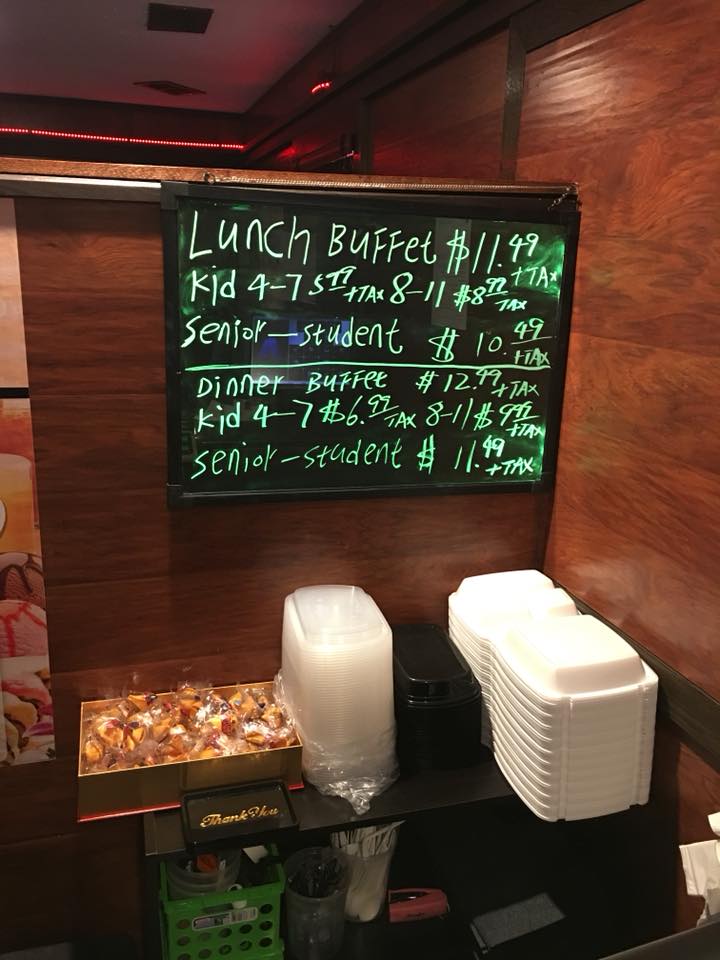 Lunch Buffet $11.49 +TAX
Kid 4-7 5.99 +TAX 8-11 $8.99 TAX
Senior-student $10.49 +TAX
Dinner Buffet $12.99 +TAX
Kid 4-7 $6.99 TAX 8-11 $9.99 +TAX
Senior-student $11.49 +TAX
Thank You